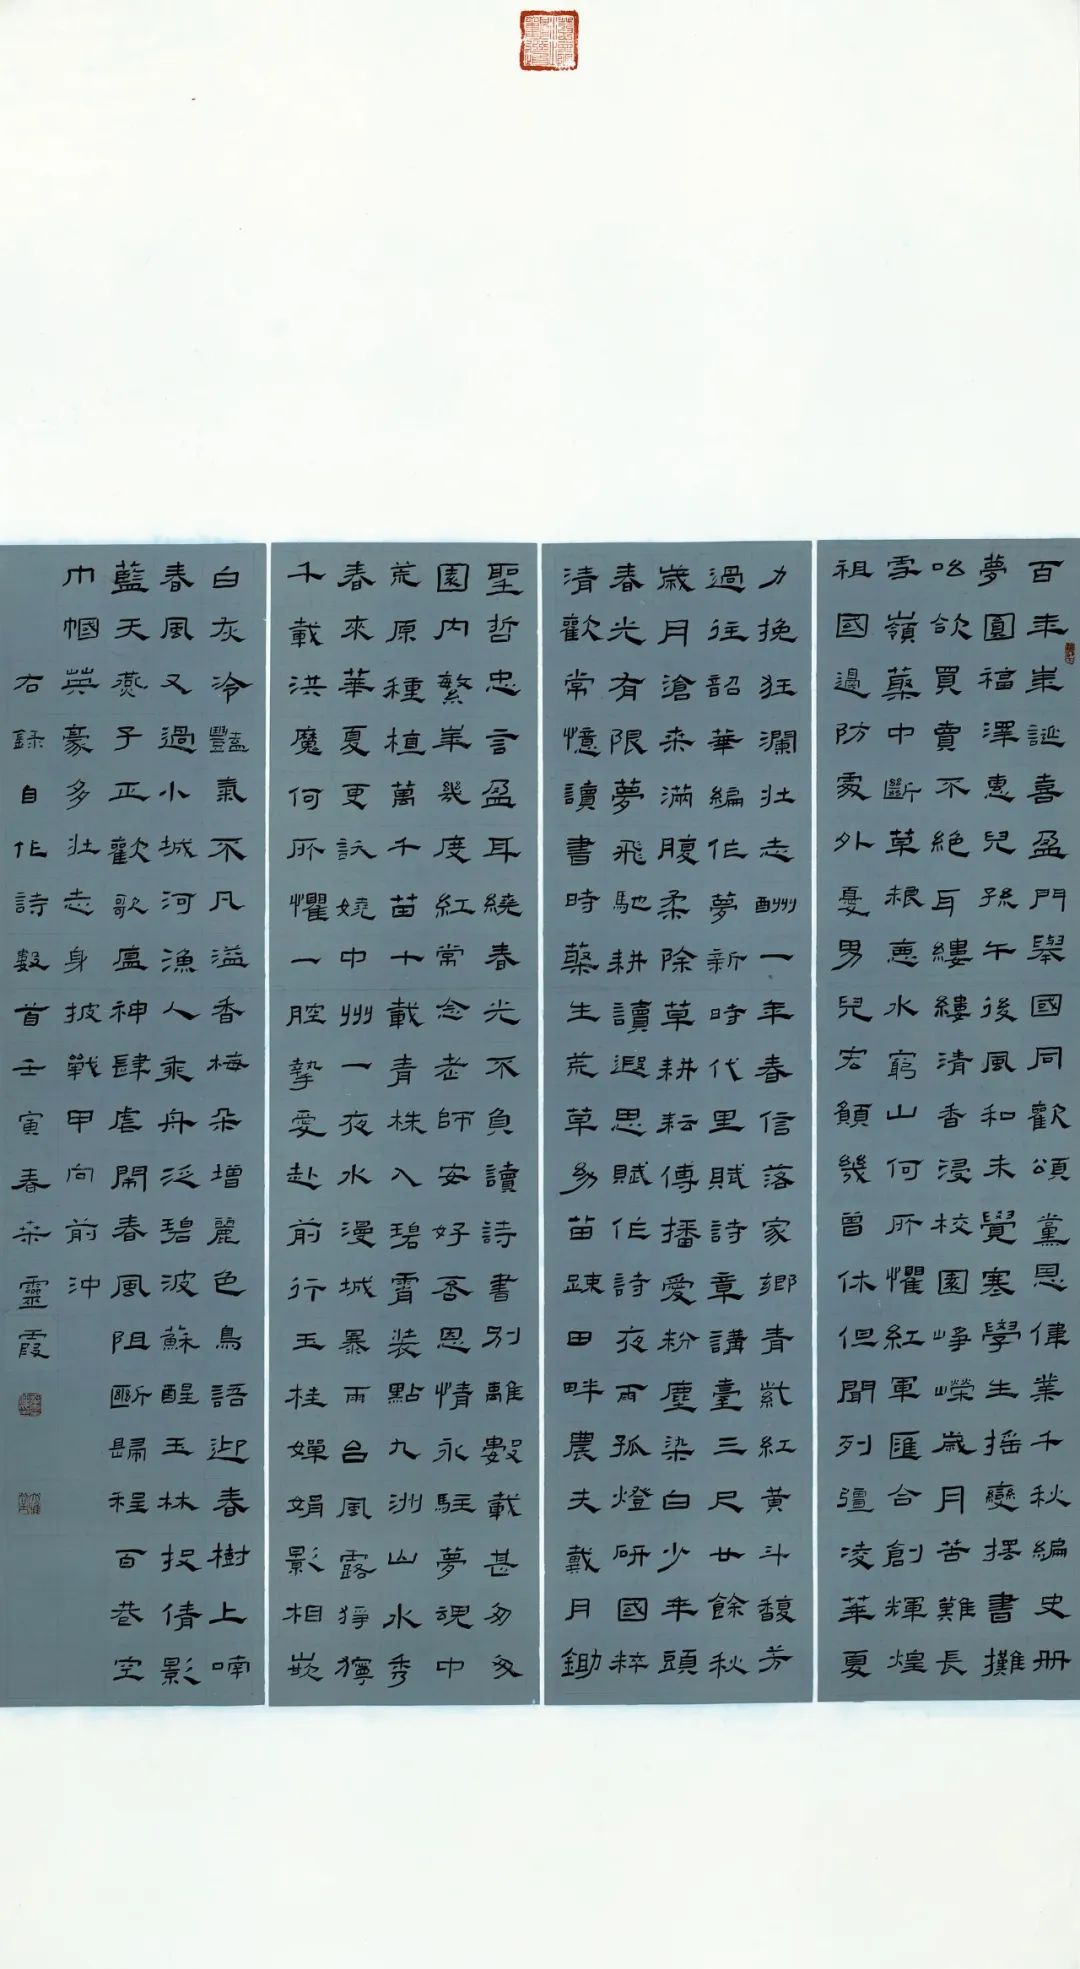 百年華誕喜盈門舉國同歡頌黨恩偉業千秋編史冊
夢圓福澤惠兒孫午後風和未覺寒學生搖戀擺書攤
吆欲買賣不絕耳縷縷清香浸校園崢嶸歲月苦難長
雪嶺叢中斷草根惡水窮山何所懼紅軍匯合創輝煌
祖國邊防處外憂男兒宏願幾曾休但聞列疆凌華夏
力挽狂瀾壯志酬一年春信落家鄉青紫紅黃斗馥芳
過往韶華編作夢新時代里賦詩章講臺三尺廿餘秋
歲月滄桑滿腹柔除草耕耘傳播愛粉塵染白少年頭
春光有限夢飛馳耕讀遐思賦作詩夜雨孤燈研國粹
清歡常憶讀書時蘂生荒草幼苗疎田畔農夫戴月鋤
聖哲忠言盈耳繞春光不負讀詩書別離數載甚匆匆
園內繁華幾度紅常念老師安好否恩情永駐夢魂中
荒原種植萬千苗十載青株入碧霄裝點九洲山水秀
春來華夏更妖嬈中州一夜水漫城暴雨台風露猙獰
千載洪魔何所懼一腔摯愛赴前行玉桂嬋娟影相嵌
白灰冷豔氣不凡溢香梅朵增麗色鳥語迎春樹上喃
春風又過小城河漁人乘舟泛碧波蘇醒玉林投倩影
藍天燕子正歡歌瘟神肆虐鬧春風阻斷歸程百巷空
巾幗英豪多壯志身披戰甲向前沖
右錄自作詩數首壬寅春朵靈霞